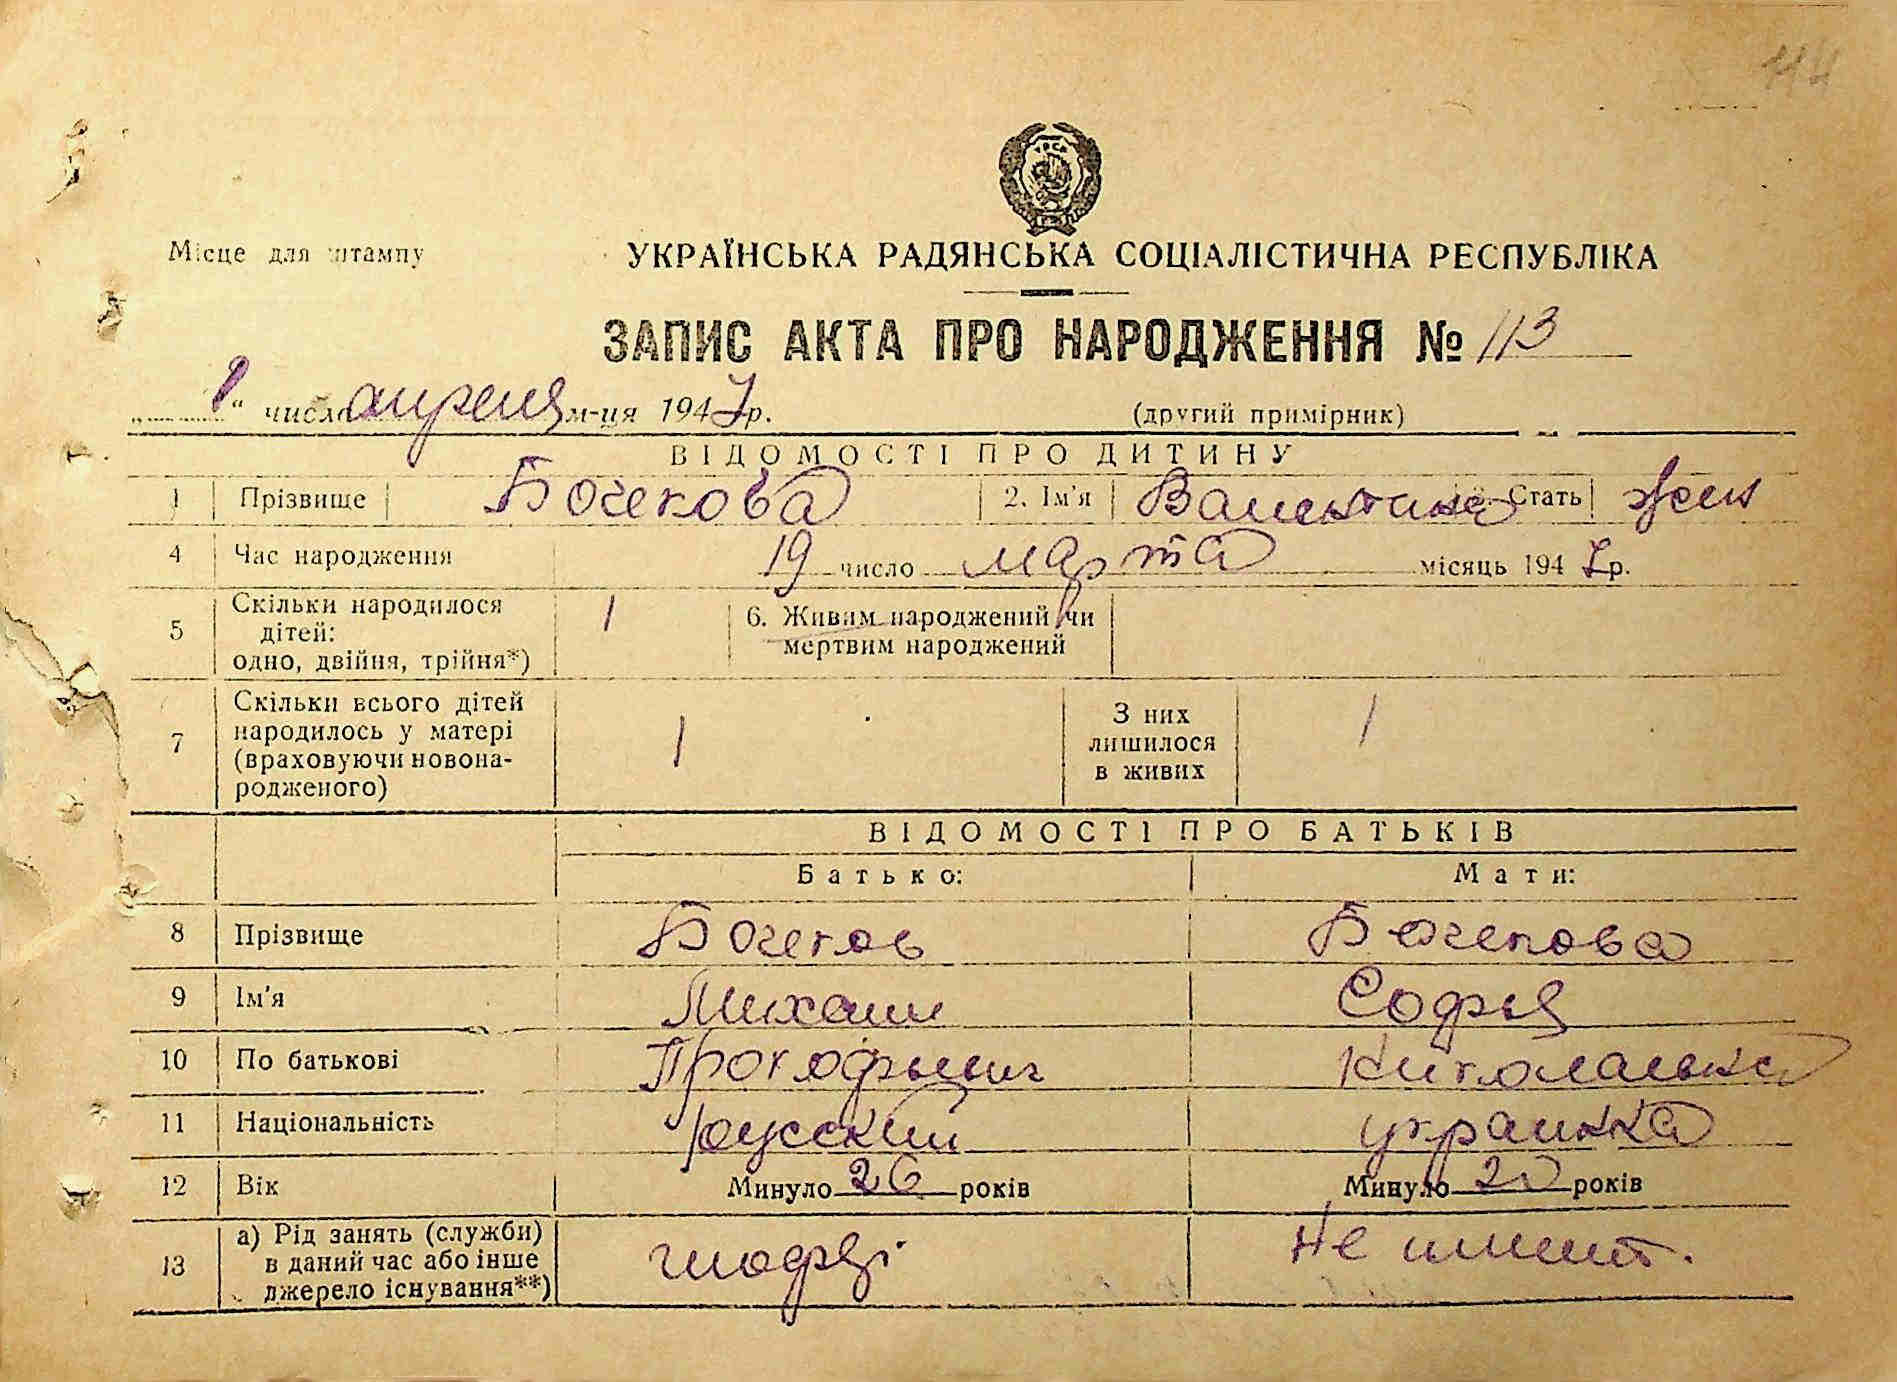 114
УРСР
Місце для штампу
УКРАЇНСЬКА РАДЯНСЬКА СОЦІАЛІСТИЧНА РЕСПУБЛІКА
ЗАПИС АКТА ПРО НАРОДЖЕННЯ № 113
„1“ число апреля м-ця 1947 р.
(другий примірник)
ВІДОМОСТІ ПРО ДИТИНУ
1 Прізвище Бочекова 2. Ім'я Валентина Стать жен
4 Час народження 19 число марта місяць 1947 р.
5 Скільки народилося дітей: одно, двійня, трійня*) 1 6. Живим народжений чи мертвим народжений
7 Скільки всього дітей народилось у матері (враховуючи новона-родженого) 1 З них лишилося в живих 1
ВІДОМОСТІ ПРО БАТЬКІВ
Батько: Мати:
8 Прізвище Бочеков Бочекова
9 Ім'я Михаил Софья
10 По батькові Прокофьевич Николаевна
11 Національність русский украинка
12 Вік Минуло 26 років Минуло 20 років
13 а) Рід занять (служби) в даний час або інше джерело існування**) Не имеет.